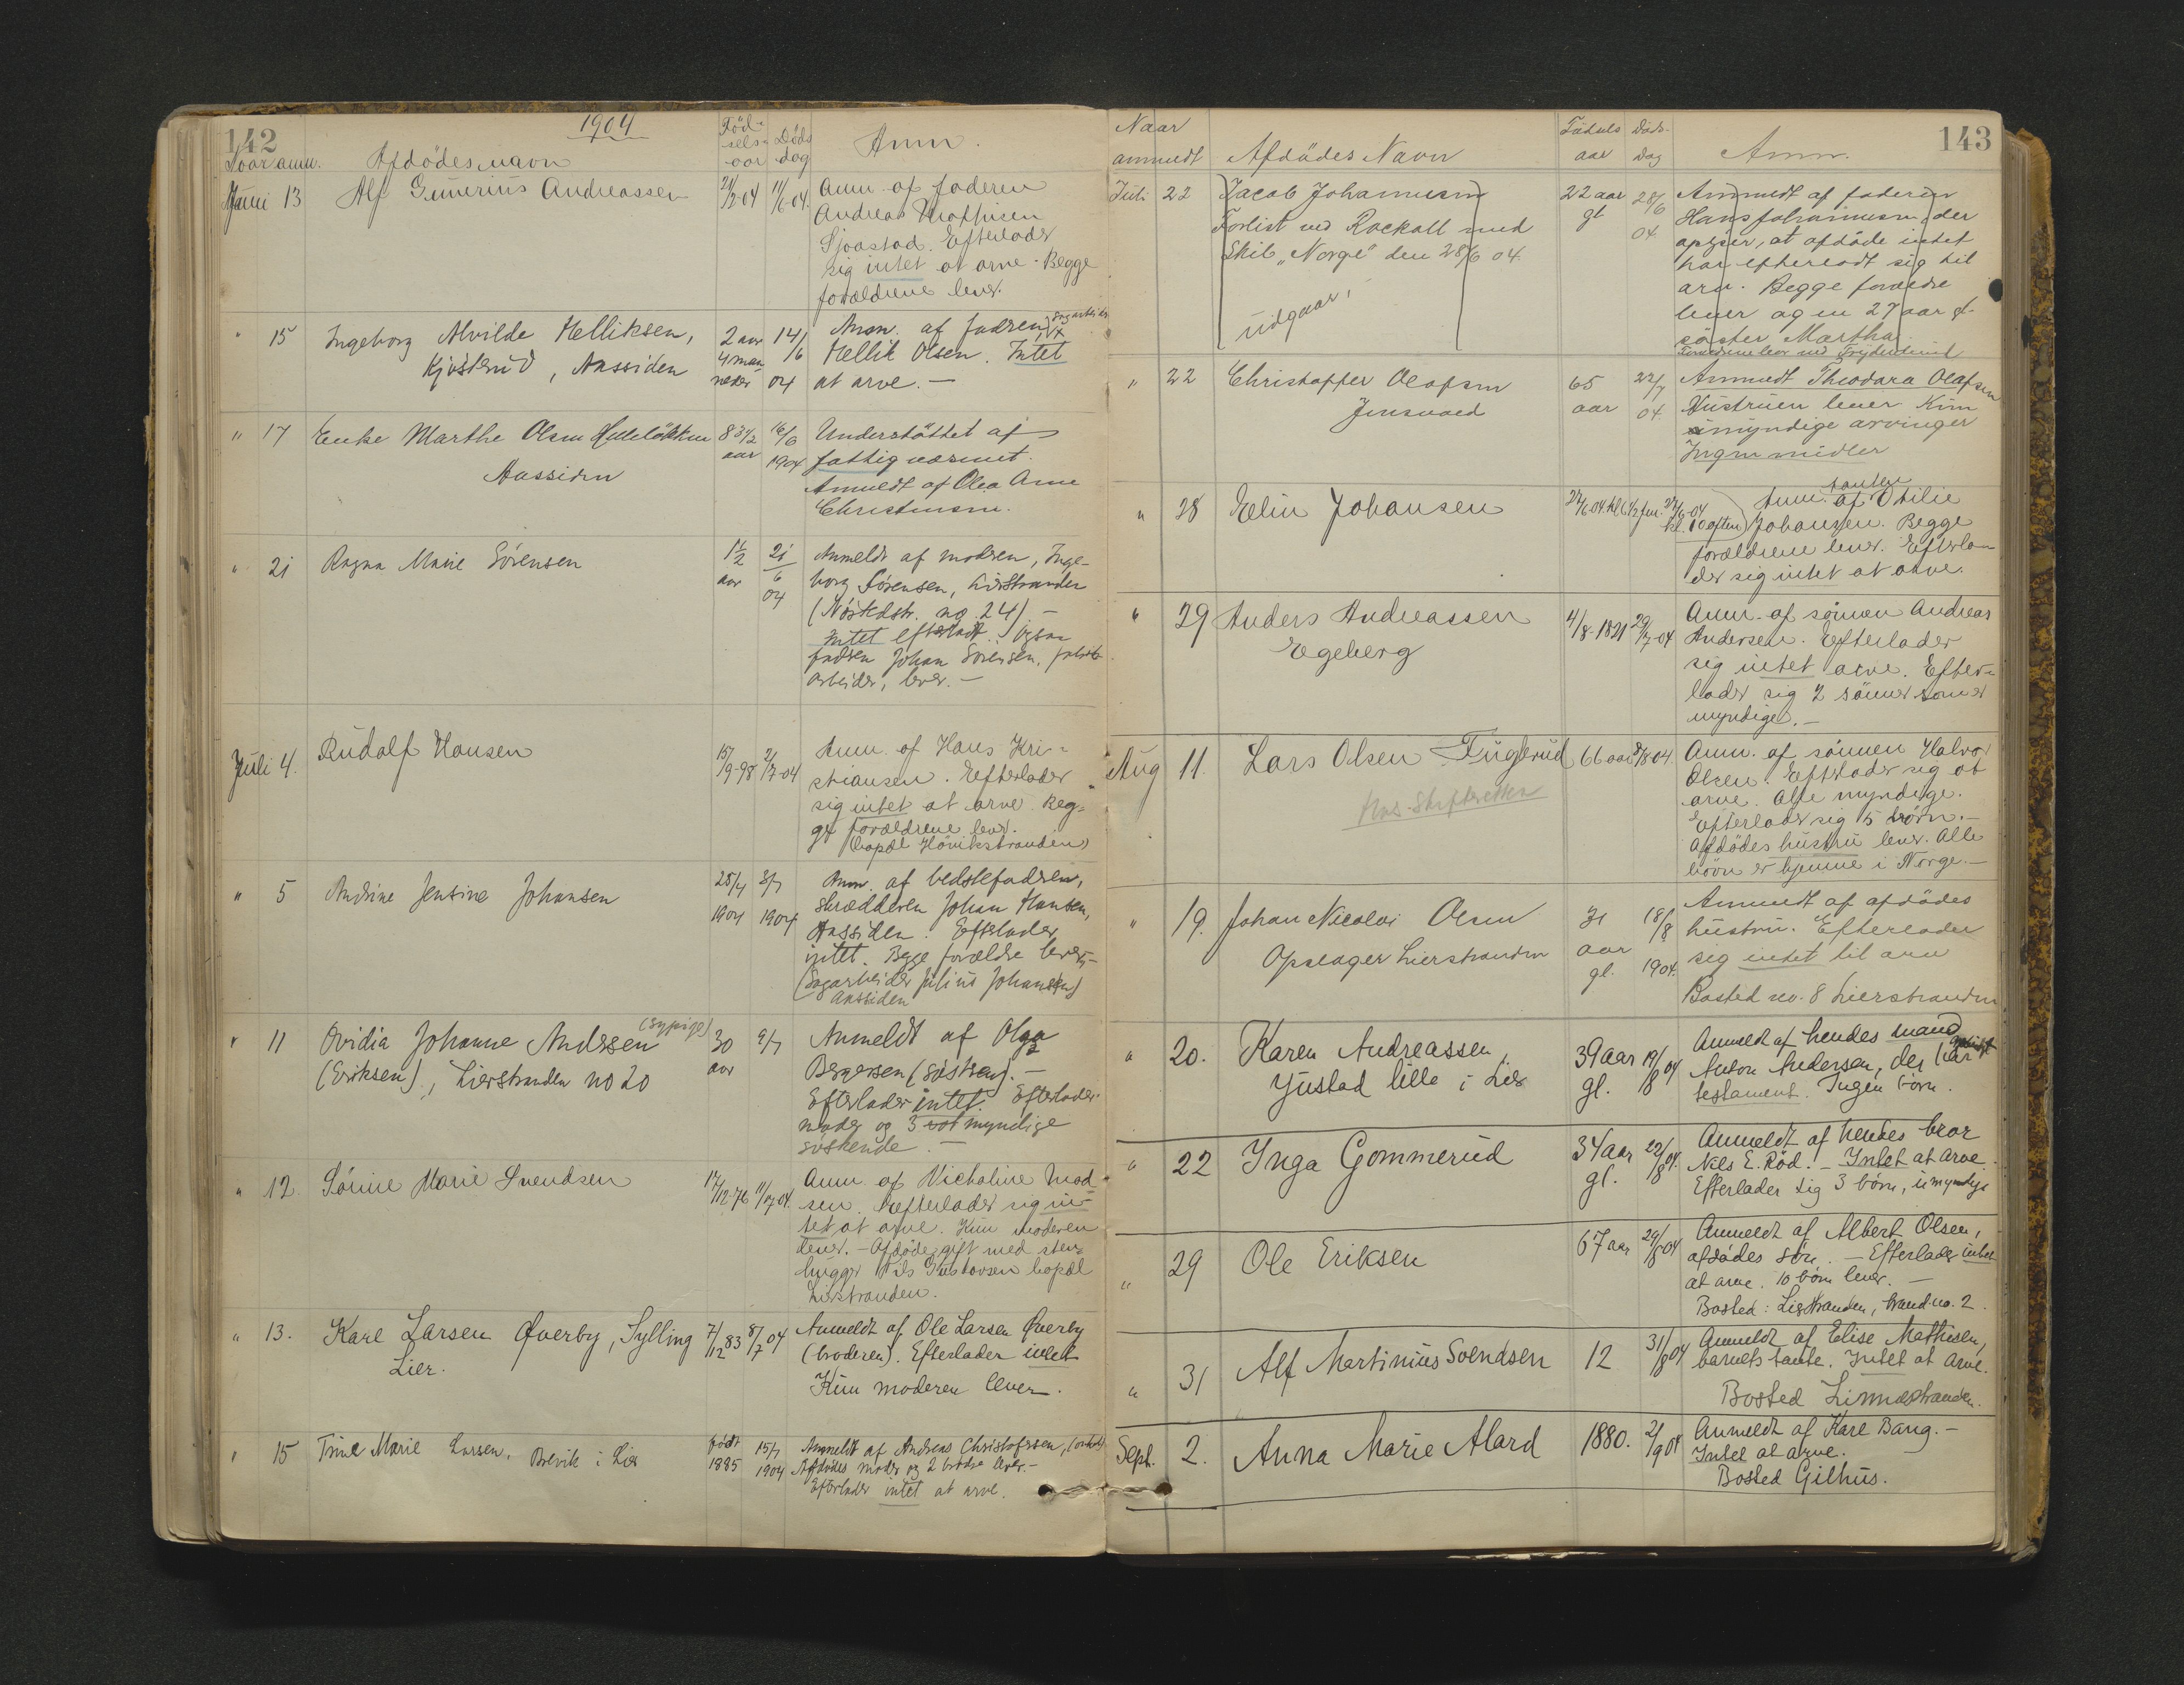 142
1904
Naar anm.
Afdödes navn
Föd-
sels-
aar
Döds
dag
Anm.
Juni 13
Alf Gunerius Andreassen
21/2-04
11/6-04.
Anm. af faderen
Andreas Mathisen
Sjaastad. Efterlader
sig intet at arve. Begge
forældrene lever.
" 15
Ingeborg Alvilde Helliksen,
Kjösterud, Aassiden
2 aar
4 maa
neder
14/6
04
Anm. af fadren,
Hellik Olsen. Intet
at arve. —
" 17
Enke Marthe Olsen
Aassiden
83 1/2
aar
16/6
1904
Understöttet af
fattigvæsenet.
Anmeldt af Olea Arne
Christensen.
" 21
Ragna Marie Sörensen
1 1/2
aar
21
6
04
Anmeldt af modren, Inge-
borg Sörensen, Lierstranden
(Nöstedstr. no 24) —
Intet efterladt. Ogsaa
fadren Johan Sörensen, fabrik-
arbeider, lever. —
Juli 4.
Rudolf Hansen
15/9-98
2/7-04
Anm. af Hans Kri-
stiansen. Efterlader
sig intet at arve. Beg-
ge forældrene lever.
(bopæl Hövikstranden)
" 5
Andrine Jensine Johansen
28/4
1904
3/7
1904
Anm. af bedstefadren,
skrædderen Johan Hansen,
Aassiden. Efterlader
intet. Begge forældre lever. —
(Sagarbeider Julius Johansen)
Aassiden
" 11
Ovidia Johanne Andersen (sypige)
(Eriksen), Lierstranden no 20
30
aar
9/7
Anmeldt af Olga
Bergersen (söstren). —
Efterlader intet. Efterlader
moder og 3 myndige
söskende. —
" 12
Sörine Marie Svendsen
17/12-76
11/7 04.
Anm. af Nicholine Mad-
sen. Efterlader sig in-
tet at arve. Kun moderen
lever. — Afdöde gift med sten-
hugger Nils Gustavsen bopæl
Lierstranden.
" 13.
Karl Larsen Överby, Sylling
Lier.
7/12 83
8/7 04
Anmeldt af Ole Larsen Överby
(broderen). Efterlader intet
Kun moderen lever.
" 15
Trine Marie Larsen, Brevik i Lier
födt
1885
15/7
1904
Anmeldt af Andreas Christofersen,
Afdödes moder og 2 brödre lever. —
Efterlader intet at arve.
143
Naar
anmeldt
Afdödes Navn
Födsels
aar
Döds-
dag
Anm.
Juli 22
Jacob Johannesen
Forlist ved Rockall med
Skib "Norge" den 28/6 04
udgaar!
22 aar
gl
28/6
04
Anmeldt af faderen
Hans Johannesen, der
oplyser, at afdöde intet
har efterladt sig til
arv. Begge forældre
lever og en 27 aar gl
söster Martha
" 22
Christoffer Olafsen
Jensvold
65
aar
22/7
04
Anmeldt Theodora Olafsen
Hustruen lever Kun
umyndige arvinger
Ingen midler
" 28
Elin Johansen
27/6 04 kl 6 1/2 fm.
27/6-04
kl. 10 aften
Anm. af tanten Othilie
Johansen. Begge
forældrene lever. Efterla-
der sig intet at arve.
" 29
Anders Andreassen
Egeberg
4/8-1821
29/7-04
Anm. af sönnen Andreas
Andersen. Efterlader
sig intet arve. Efter-
lader sig 2 sönner som er
myndige. —
Aug 11.
Lars Olsen Fuglerud
Har Skifteretten
66 aar
8/8 04.
Anm. af sönnen Halvor
Olsen. Efterlader sig at
arve. Alle myndige.
Efterlader sig 5 börn. —
Afdödes hustru lever. Alle
börn er hjemme i Norge. —
" 19.
Johan Nicolai Olsen
Opsager Lierstranden
31
aar
gl.
18/8
1904.
Anmeldt af afdödes
hustru. Efterlader
sig intet til arv
Bosted no. 8 Lierstranden
" 20.
Karen Andreassen,
Justad lille i Lier
39 aar
gl.
19/8 04
Anmeldt af hendes mand
Anton Andersen, der har
testament. Ingen börn.
" 22
Inga Gommerud
34 aar
gl.
22/8 04.
Anmeldt af hendes bror
Nils E. Röd. — Intet at arve.
Efterlader sig 3 börn, umyndige
" 29
Ole Eriksen
67 aar
29/8 04
Anmeldt af Albert Olsen,
afdödes sön. — Efterlader intet
at arve. 10 börn lever. —
Bosted: Lierstranden, brand-no. 2.
" 31
Alf Martinius Svendsen
12
31/8 04
Anmeldt af Elise Mathisen,
barnets tante. Intet at arve.
Bosted
Sept. 2.
Anna Marie Alard
1880.
2/9 04
Anmeldt af Karl Bang. —
Intet at arve.
Bosted Gilhus.